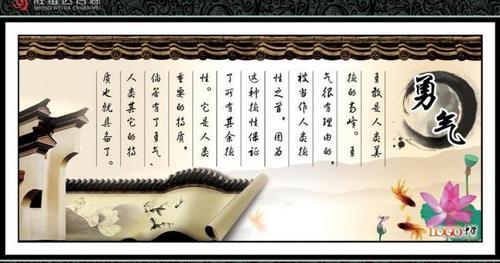 SHENG WEIDA CHUAN MEI
勇气
勇敢是人类美
德的高峰。勇
气很有理由的,
被当作人类德
性之首,因为
这种德性保证
了所有其余德
性。它是人类
重要的特质,
倘若有了勇气、
人类其它的特
质也就具备了。
LOGO中学